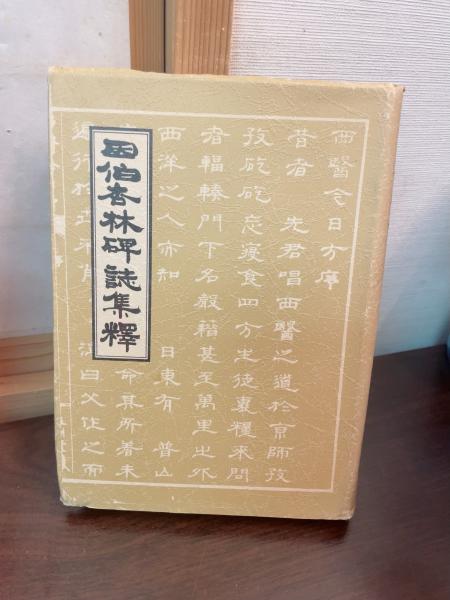 因伯杏林碑誌集釋
西醫今日方序
昔者 先君唱西醫之道於京師孜
孜矻矻忘寢食四方生徒裹糧來問
者輻輳門下名聲藉甚至萬里之外
西洋之人亦知 日東有 普山
命其所著未
行於 曰父作之而